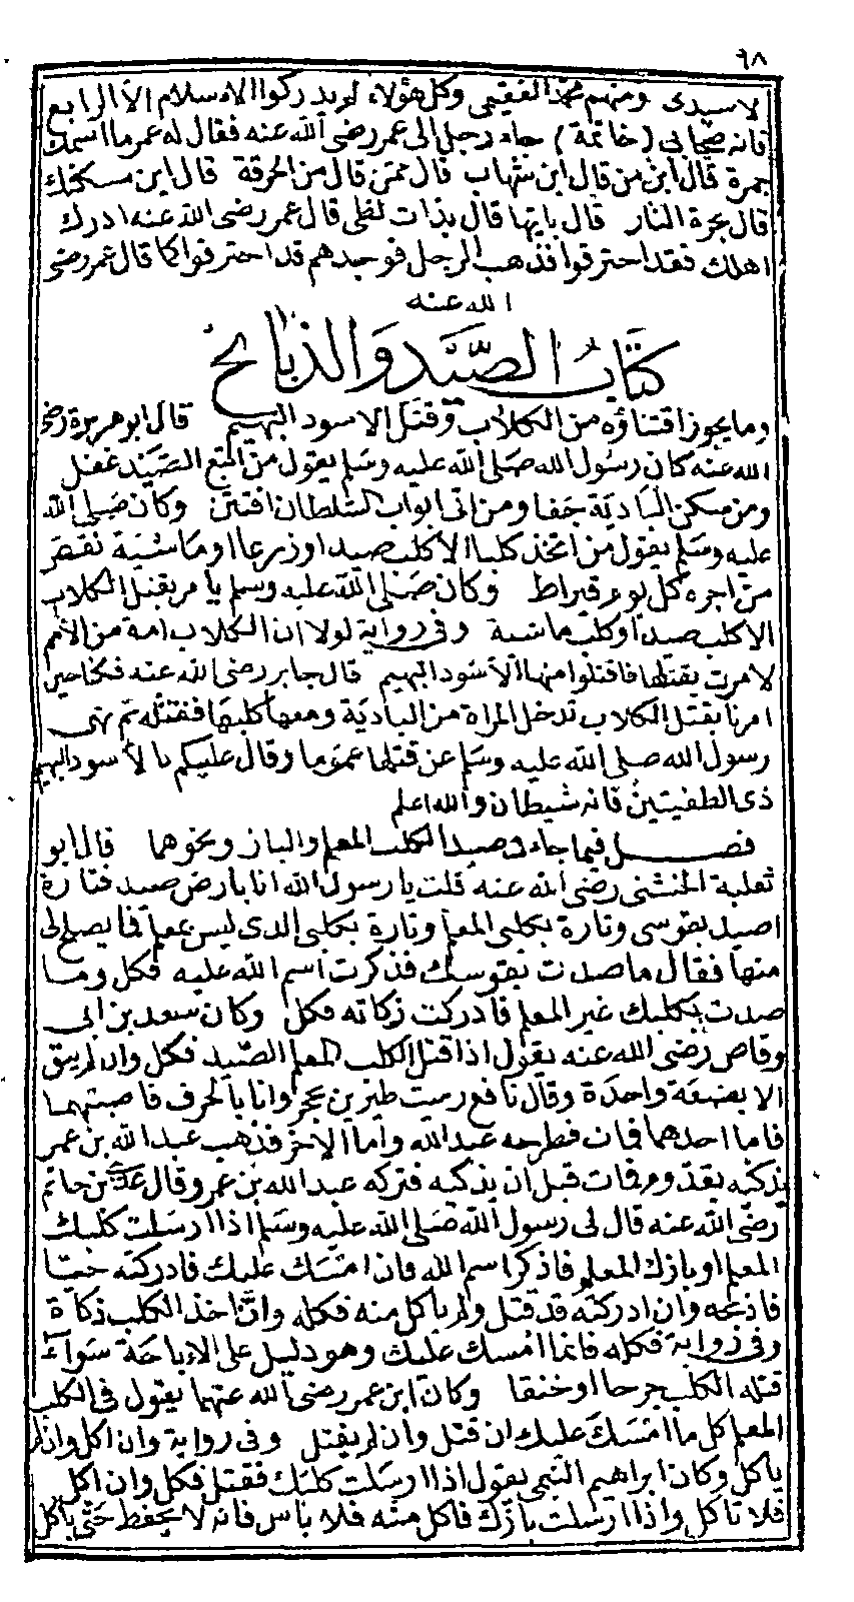 ٦٨
لاسيدى ومنهم محمد الفقيمى وكل هؤلاء لم يدركوا الاسلام الا الرابع
فانه صحابى (خاتمة) جاء رجل الى عمر رضى الله عنه فقال له عمر ما اسمك
جمرة قال ابن من قال ابن شهاب قال ممن قال من الحرقة قال اين مسكنك
قال بحرة النار قال بايها قال بذات لظى قال عمر رضى الله عنه ادرك
اهلك فقد احترقوا فذهب الرجل فوجدهم قد احترقوا كما قال عمر رضى
الله عنه
كتاب الصيد والذبائح
وما يجوز اقتناؤه من الكلاب وقتل الاسود البهيم قال ابو هريرة رضى
الله عنه كان رسول الله صلى الله عليه وسلم يقول من اتبع الصيد غفل
ومن سكن البادية جفا ومن اتى ابواب السلطان افتتن وكان صلى الله
عليه وسلم يقول من اتخذ كلبا الا كلب صيد او زرع او ماشية نقص
من اجره كل يوم قيراط وكان صلى الله عليه وسلم يامر بقتل الكلاب
الا كلب صيد او كلب ماشية وفى رواية لولا ان الكلاب امة من الامم
لامرت بقتلها فاقتلوا منها الاسود البهيم قال جابر رضى الله عنه فكنا حين
امرنا بقتل الكلاب تدخل المراة من البادية ومعها كلبها فنقتله ثم نهى
رسول الله صلى الله عليه وسلم عن قتلها عموما وقال عليكم بالاسود البهيم
ذى الطفيتين فانه شيطان والله اعلم
فصل فيما جاء فى صيد الكلب المعلم والباز ونحوهما قال ابو
ثعلبة الخشنى رضى الله عنه قلت يا رسول الله انا بارض صيد فتارة
اصيد بقوسى وتارة بكلبى المعلم وتارة بكلبى الذى ليس بمعلم فما يصلح لى
منها فقال ما صدت بقوسك فذكرت اسم الله عليه فكل وما
صدت بكلبك غير المعلم فادركت زكاته فكل وكان سعد بن ابى
وقاص رضى الله عنه يقول اذا قتل الكلب المعلم الصيد فكل وان لم يبق
الا بضعة واحدة وقال نافع رميت طيرين بحجر وانا بالجرف فاصبتهما
فاما احدهما فمات فطرحه عبد الله واما الاخر فذهب عبد الله بن عمر
يذكيه بقدوم فمات قبل ان يذكيه فتركه عبد الله بن عمر وقال عدى بن حاتم
رضى الله عنه قال لى رسول الله صلى الله عليه وسلم اذا ارسلت كلبك
المعلم او بازك المعلم فاذكر اسم الله فان امسك عليك فادركته حيا
فاذبحه وان ادركته قد قتل ولم ياكل منه فكله وان اخذ الكلب ذكاة
وفى رواية فكله فانما امسك عليك وهو دليل على الاباحة سواء
قتله الكلب جرحا او خنقا وكان ابن عمر رضى الله عنهما يقول فى الكلب
المعلم كل ما امسك عليك ان قتل وان لم يقتل وفى رواية وان اكل وان لم
ياكل وكان ابراهيم التيمى يقول اذا ارسلت كلبك فقتل فكل وان اكل
فلا تاكل واذا ارسلت بازك فاكل منه فلا باس فانه لا يحفظ حتى ياكل